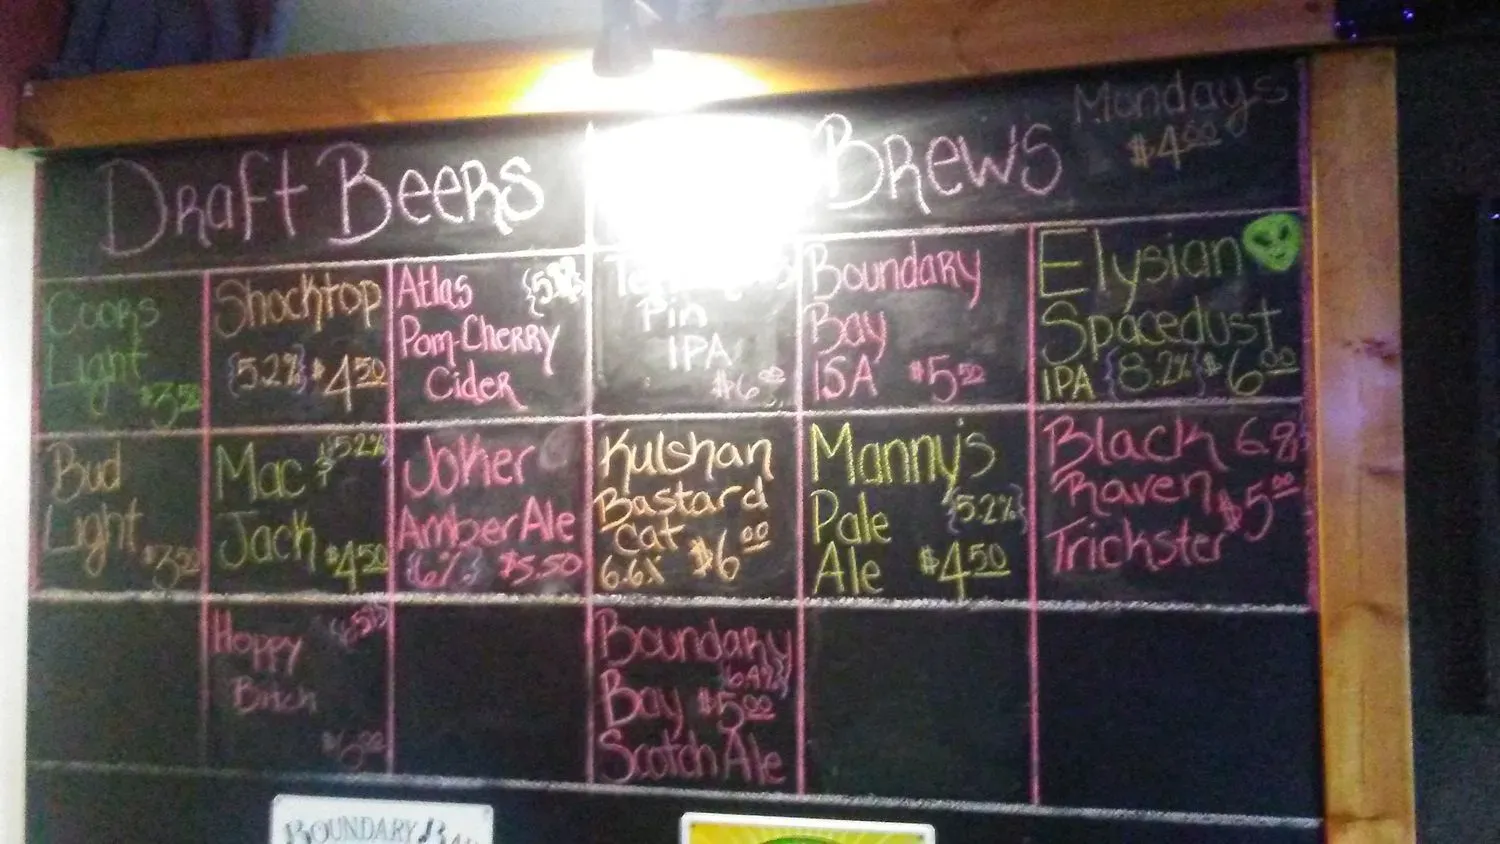 Draft Beers
Brew's
Mondays
$4.00
Coors
Light
$3.50
Shocktop
{5.2%} $4.50
Atlas
Pom-Cherry
Cider
Pin
IPA
Boundary
Bay
ISA $5.50
Elysian
Spacedust
IPA {8.2%} $6.00
Bud
Light
$3.50
Mac $ {5.2%}
Jack $4.50
Joker
Amber Ale
{6%} $5.50
Kulshan
Bastard
Cat
6.6% $6.00
Manny's
Pale {5.2%}
Ale $4.50
Black
Raven $5.00
Trickster
Hoppy
Bitch
Boundary
{6.4%}
Bay $5.00
Scotch Ale
BOUNDARY BAY